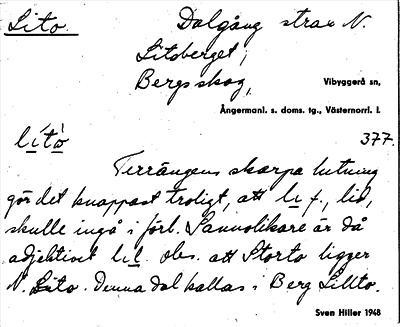 Lito. Dalgång strax N.
Litoberget,
Bergsskog,
Vibyggerå sn,
Ångermanl. s. doms. tg., Västernorrl. l.
lito 377.
Terrängens skarpa lutning
gör det knappast troligt, att li f., lid,
skulle ingå i förb. Sannolikare är då
adjektivet lil. obs. att Storto ligger
N. Lito. Denna dal kallas i Berg Lillto.
Sven Hiller 1948